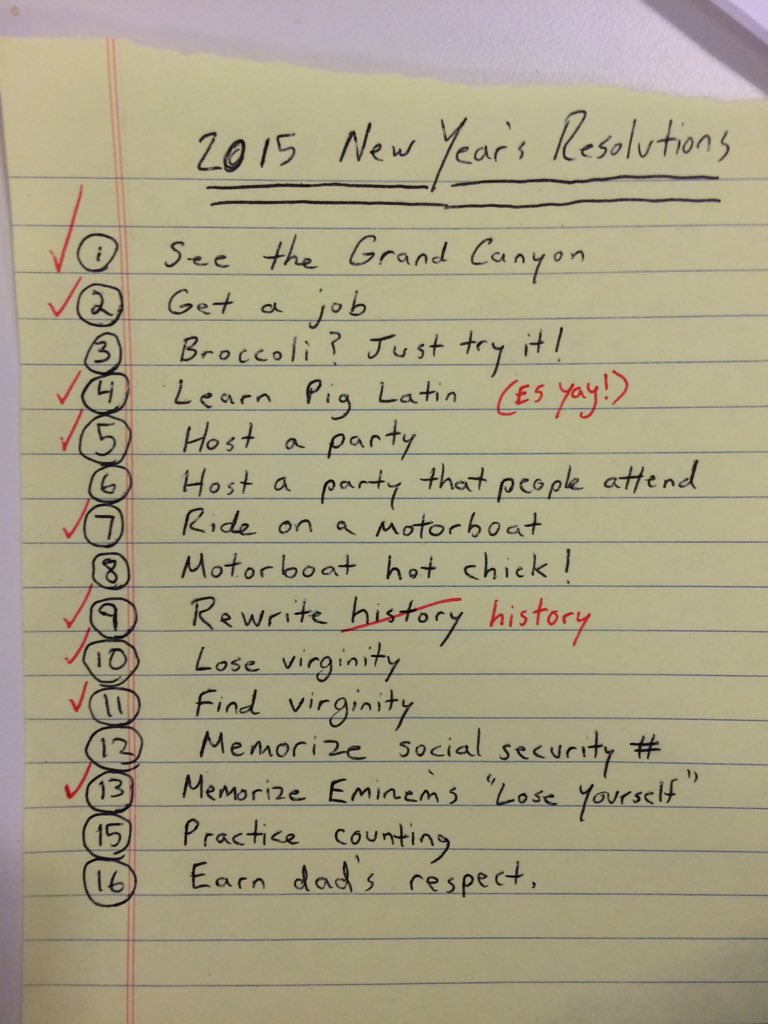 2015 New Year's Resolutions
1 See the Grand Canyon
2 Get a job
3 Broccoli? Just try it!
4 Learn Pig Latin (ES yay!)
5 Host a party
6 Host a party that people attend
7 Ride on a motorboat
8 Motorboat hot chick!
9 Rewrite history history
10 Lose virginity
11 Find virginity
12 Memorize social security #
13 Memorize Eminem's "Lose Yourself"
15 Practice counting
16 Earn dad's respect.